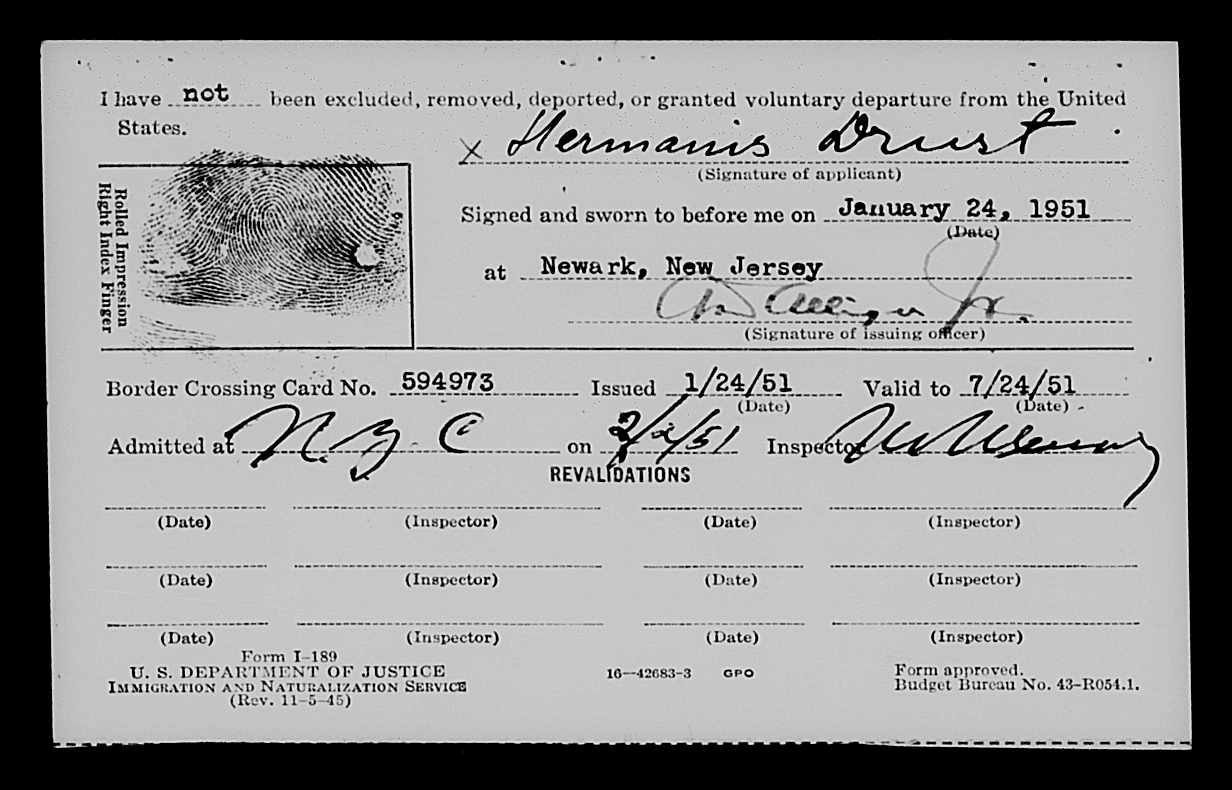 I have not been excluded, removed, deported, or granted voluntary departure from the United
States.
x Hermanis Drust
(Signature of applicant)
Rolled Impression
Right Index Finger
Signed and sworn to before me on January 24, 1951
(Date)
at Newark, New Jersey
Jr.
(Signature of issuing officer)
Border Crossing Card No. 594973 Issued 1/24/51 Valid to 7/24/51
(Date) (Date)
Admitted at N. Y. C on 2/2/51 Inspector
REVALIDATIONS
(Date) (Inspector) (Date) (Inspector)
(Date) (Inspector) (Date) (Inspector)
(Date) (Inspector) (Date) (Inspector)
Form I-189
U. S. DEPARTMENT OF JUSTICE
IMMIGRATION AND NATURALIZATION SERVICE
(Rev. 11-5-45)
16—42683-3 GPO
Form approved.
Budget Bureau No. 43-R054.1.